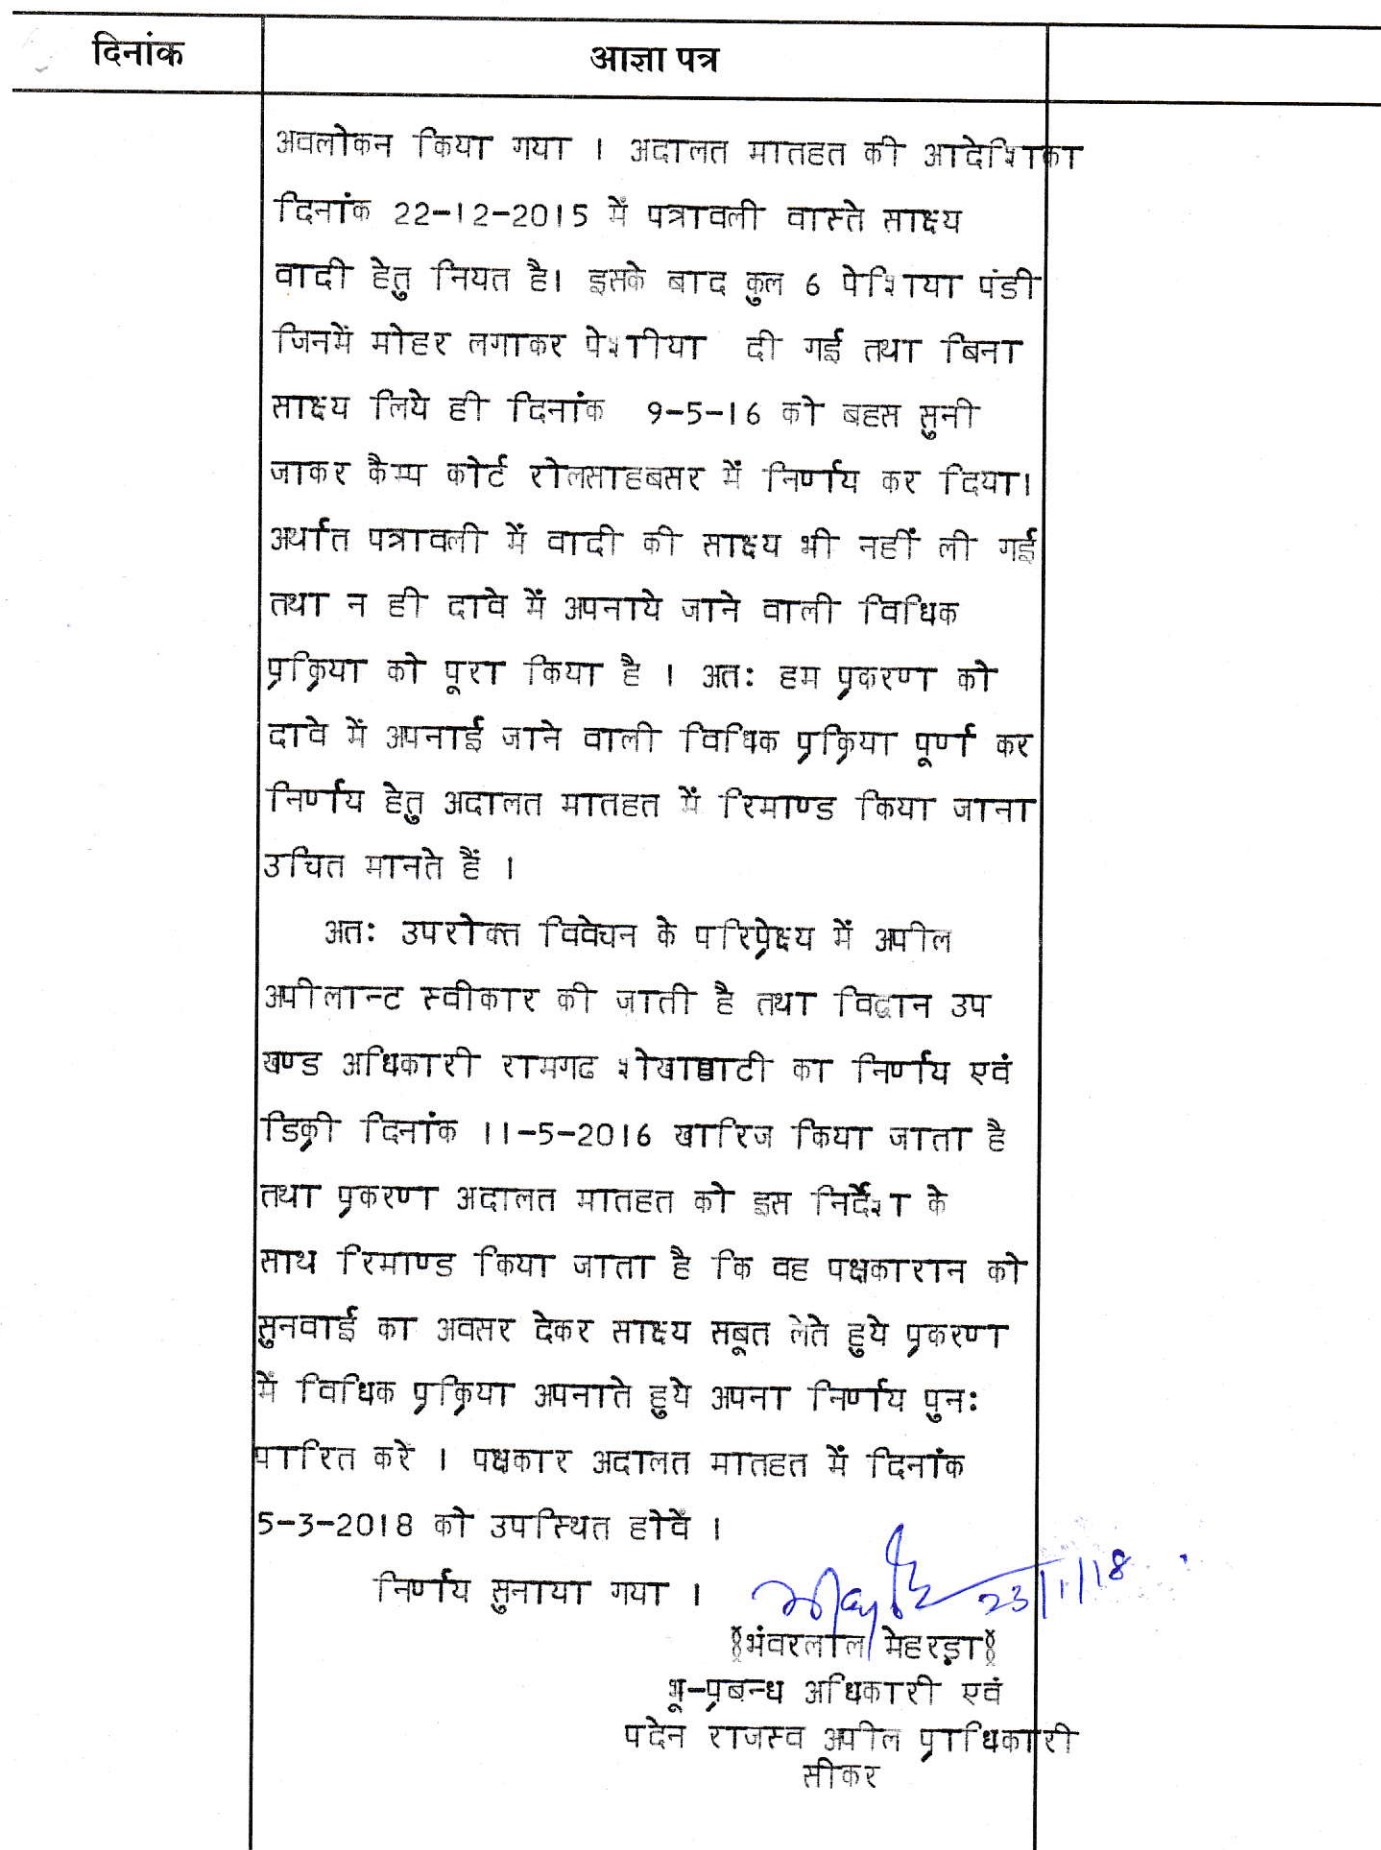 दिनांक
आज्ञा पत्र
अवलोकन किया गया । अदालत मातहत की आदेशिका
दिनांक 22-12-2015 में पत्रावली वास्ते साक्ष्य
वादी हेतु नियत है। इसके बाद कुल 6 पेशिया पंडी
जिनमें मोहर लगाकर पेशीया दी गई तथा बिना
साक्ष्य लिये ही दिनांक 9-5-16 को बहस सुनी
जाकर कैम्प कोर्ट रोलसाहबसर में निर्णय कर दिया।
अर्थात पत्रावली में वादी की साक्ष्य भी नहीं ली गई
तथा न ही दावे में अपनाये जाने वाली विधिक
प्रक्रिया को पूरा किया है । अतः हम प्रकरण को
दावे में अपनाई जाने वाली विधिक प्रक्रिया पूर्ण कर
निर्णय हेतु अदालत मातहत में रिमाण्ड किया जाना
उचित मानते हैं ।
अतः उपरोक्त विवेचन के परिप्रेक्ष्य में अपील
अपीलान्ट स्वीकार की जाती है तथा विद्वान उप
खण्ड अधिकारी रामगढ शेखावाटी का निर्णय एवं
डिक्री दिनांक 11-5-2016 खारिज किया जाता है
तथा प्रकरण अदालत मातहत को इस निर्देश के
साथ रिमाण्ड किया जाता है कि वह पक्षकारान को
सुनवाई का अवसर देकर साक्ष्य सबूत लेते हुये प्रकरण
में विधिक प्रक्रिया अपनाते हुये अपना निर्णय पुनः
पारित करें । पक्षकार अदालत मातहत में दिनांक
5-3-2018 को उपस्थित होवें ।
निर्णय सुनाया गया ।
23/1/18
(भंवरलाल मेहरड़ा)
भू-प्रबन्ध अधिकारी एवं
पदेन राजस्व अपील प्राधिकारी
सीकर